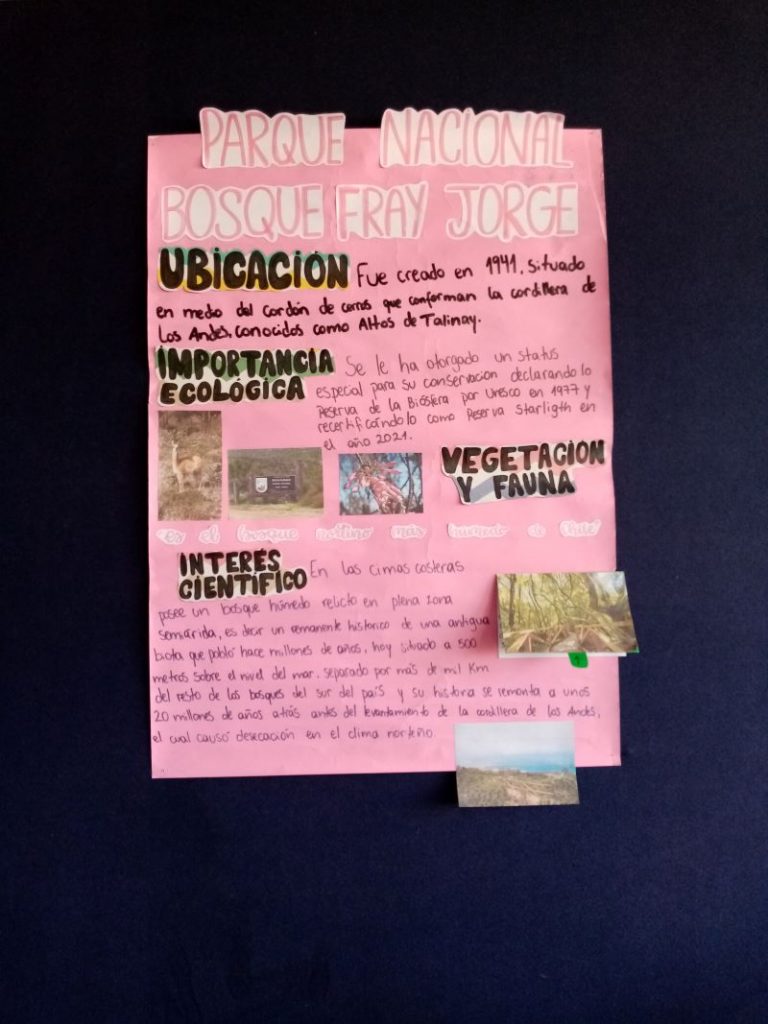 PARQUE NACIONAL
BOSQUE FRAY JORGE
UBICACIÓN Fue creado en 1941, Situado
en medio del cordón de cerros que conforman la cordillera de
Los Andes, conocidos como Altos de Talinay.
IMPORTANCIA
ECOLÓGICA
Se le ha otorgado un status
especial para su conservacion declarandolo
Reserva de la Biósfera por Unesco en 1977 y
recertificándolo como Reserva Starligth en
el año 2021.
VEGETACION
Y FAUNA
"es el bosque más humedo de Chile"
INTERÉS
CIENTÍFICO
En las cimas costeras
posee un bosque húmedo relicto en plena zona
semiárida, es decir un remanente histórico de una antigua
biota que pobló hace millones de años, hoy situado a 500
metros sobre el nivel del mar, separado por más de mil Km
del resto de los bosques del sur del país y su historia se remonta a unos
20 millones de años atrás antes del levantamiento de la cordillera de Los Andes,
el cual causó desecación en el clima norteño.